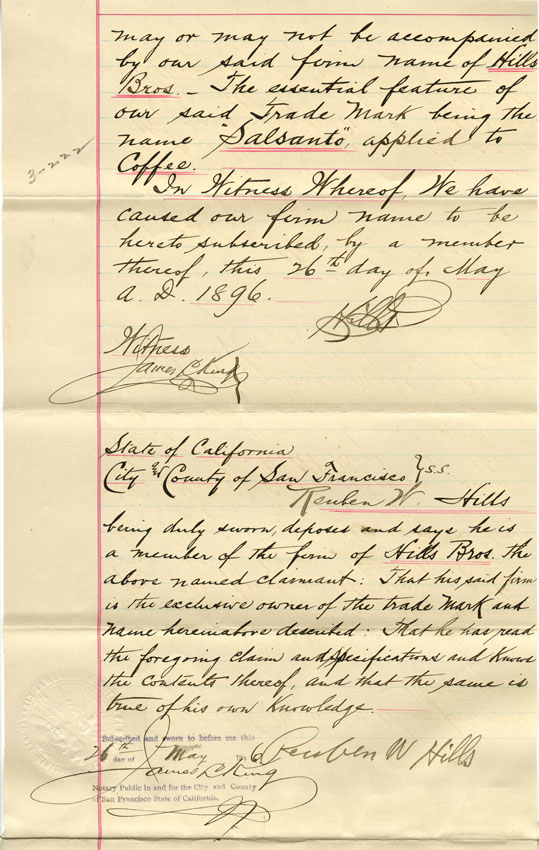 may or may not be accompanied
by our said firm name of Hills
Bros. – The essential feature of
our said Trade Mark being the
name "Salsanto", applied to
Coffee.
3-222
In Witness Whereof, We have
caused our firm name to be
hereto subscribed, by a member
thereof, this 26th day of May
A. D. 1896.
Witness
James L. King
State of California
City & County of San Francisco } S.S.
Reuben W. Hills
being duly sworn, deposes and says he is
a member of the firm of Hills Bros. the
above named claimant: That his said firm
is the exclusive owner of the trade Mark and
name hereinabove described: That he has read
the foregoing claim and specifications and knows
the contents thereof, and that the same is
true of his own knowledge.
Subscribed and sworn to before me this
26th day of May 6 Reuben W Hills
James L. King
Notary Public in and for the City and County
of San Francisco State of California.